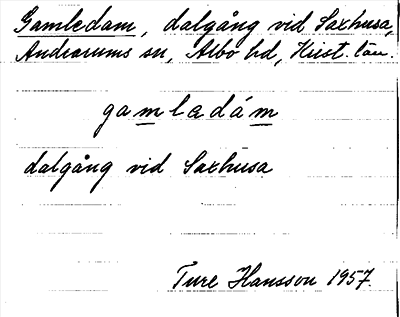 Gamledam, dalgång vid Saxhusa,
Andrarums sn, Albo hd, Krist. län.
gamladám
dalgång vid Saxhusa
Ture Hansson 1957.